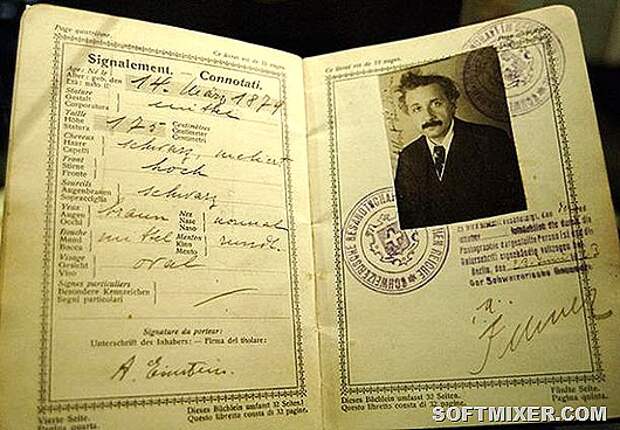 Page quatrième.
Ce livret est de 32 pages.
Signalement. — Connotati.
Age: Né le
Alter: geb. den
Età: nato il
14. März 1879
Stature
Gestalt
Corporatura
mittel
Taille
Höhe
Statura
175
Centimètres
Centimeter
Centimetri
Cheveux
Haare
Capelli
schwarz, meliert
Front
Stirne
Fronte
hoch
Sourcils
Augenbrauen
Sopracciglia
schwarz
Yeux
Augen
Occhi
braun
Nez
Nase
Naso
normal
Bouche
Mund
Bocca
mittel
Menton
Kinn
Mento
rund
Visage
Gesicht
Viso
oval
Signes particuliers
Besondere Kennzeichen
Segni particolari
Signature du porteur:
Unterschrift des Inhabers: — Firma del titolare:
A. Einstein.
Vierte Seite.
Pagina quarta.
Dieses Büchlein umfasst 32 Seiten.
Questo libretto consta di 32 pagine.
Ce livret est de 32 pages.
SCHWEIZERISCHE GESANDTSCHAFT
die durch die
Photographie dargestellte Person ist und die
Unterschrift eigenhändig vollzogen hat.
Berlin, den
Der Schweizerische Gesandte
i. a.
Dieses Büchlein umfasst 32 Seiten.
Questo libretto consta di 32 pagine.
Fünfte Seite.
Pagina quinta.
SOFTMIXER.COM